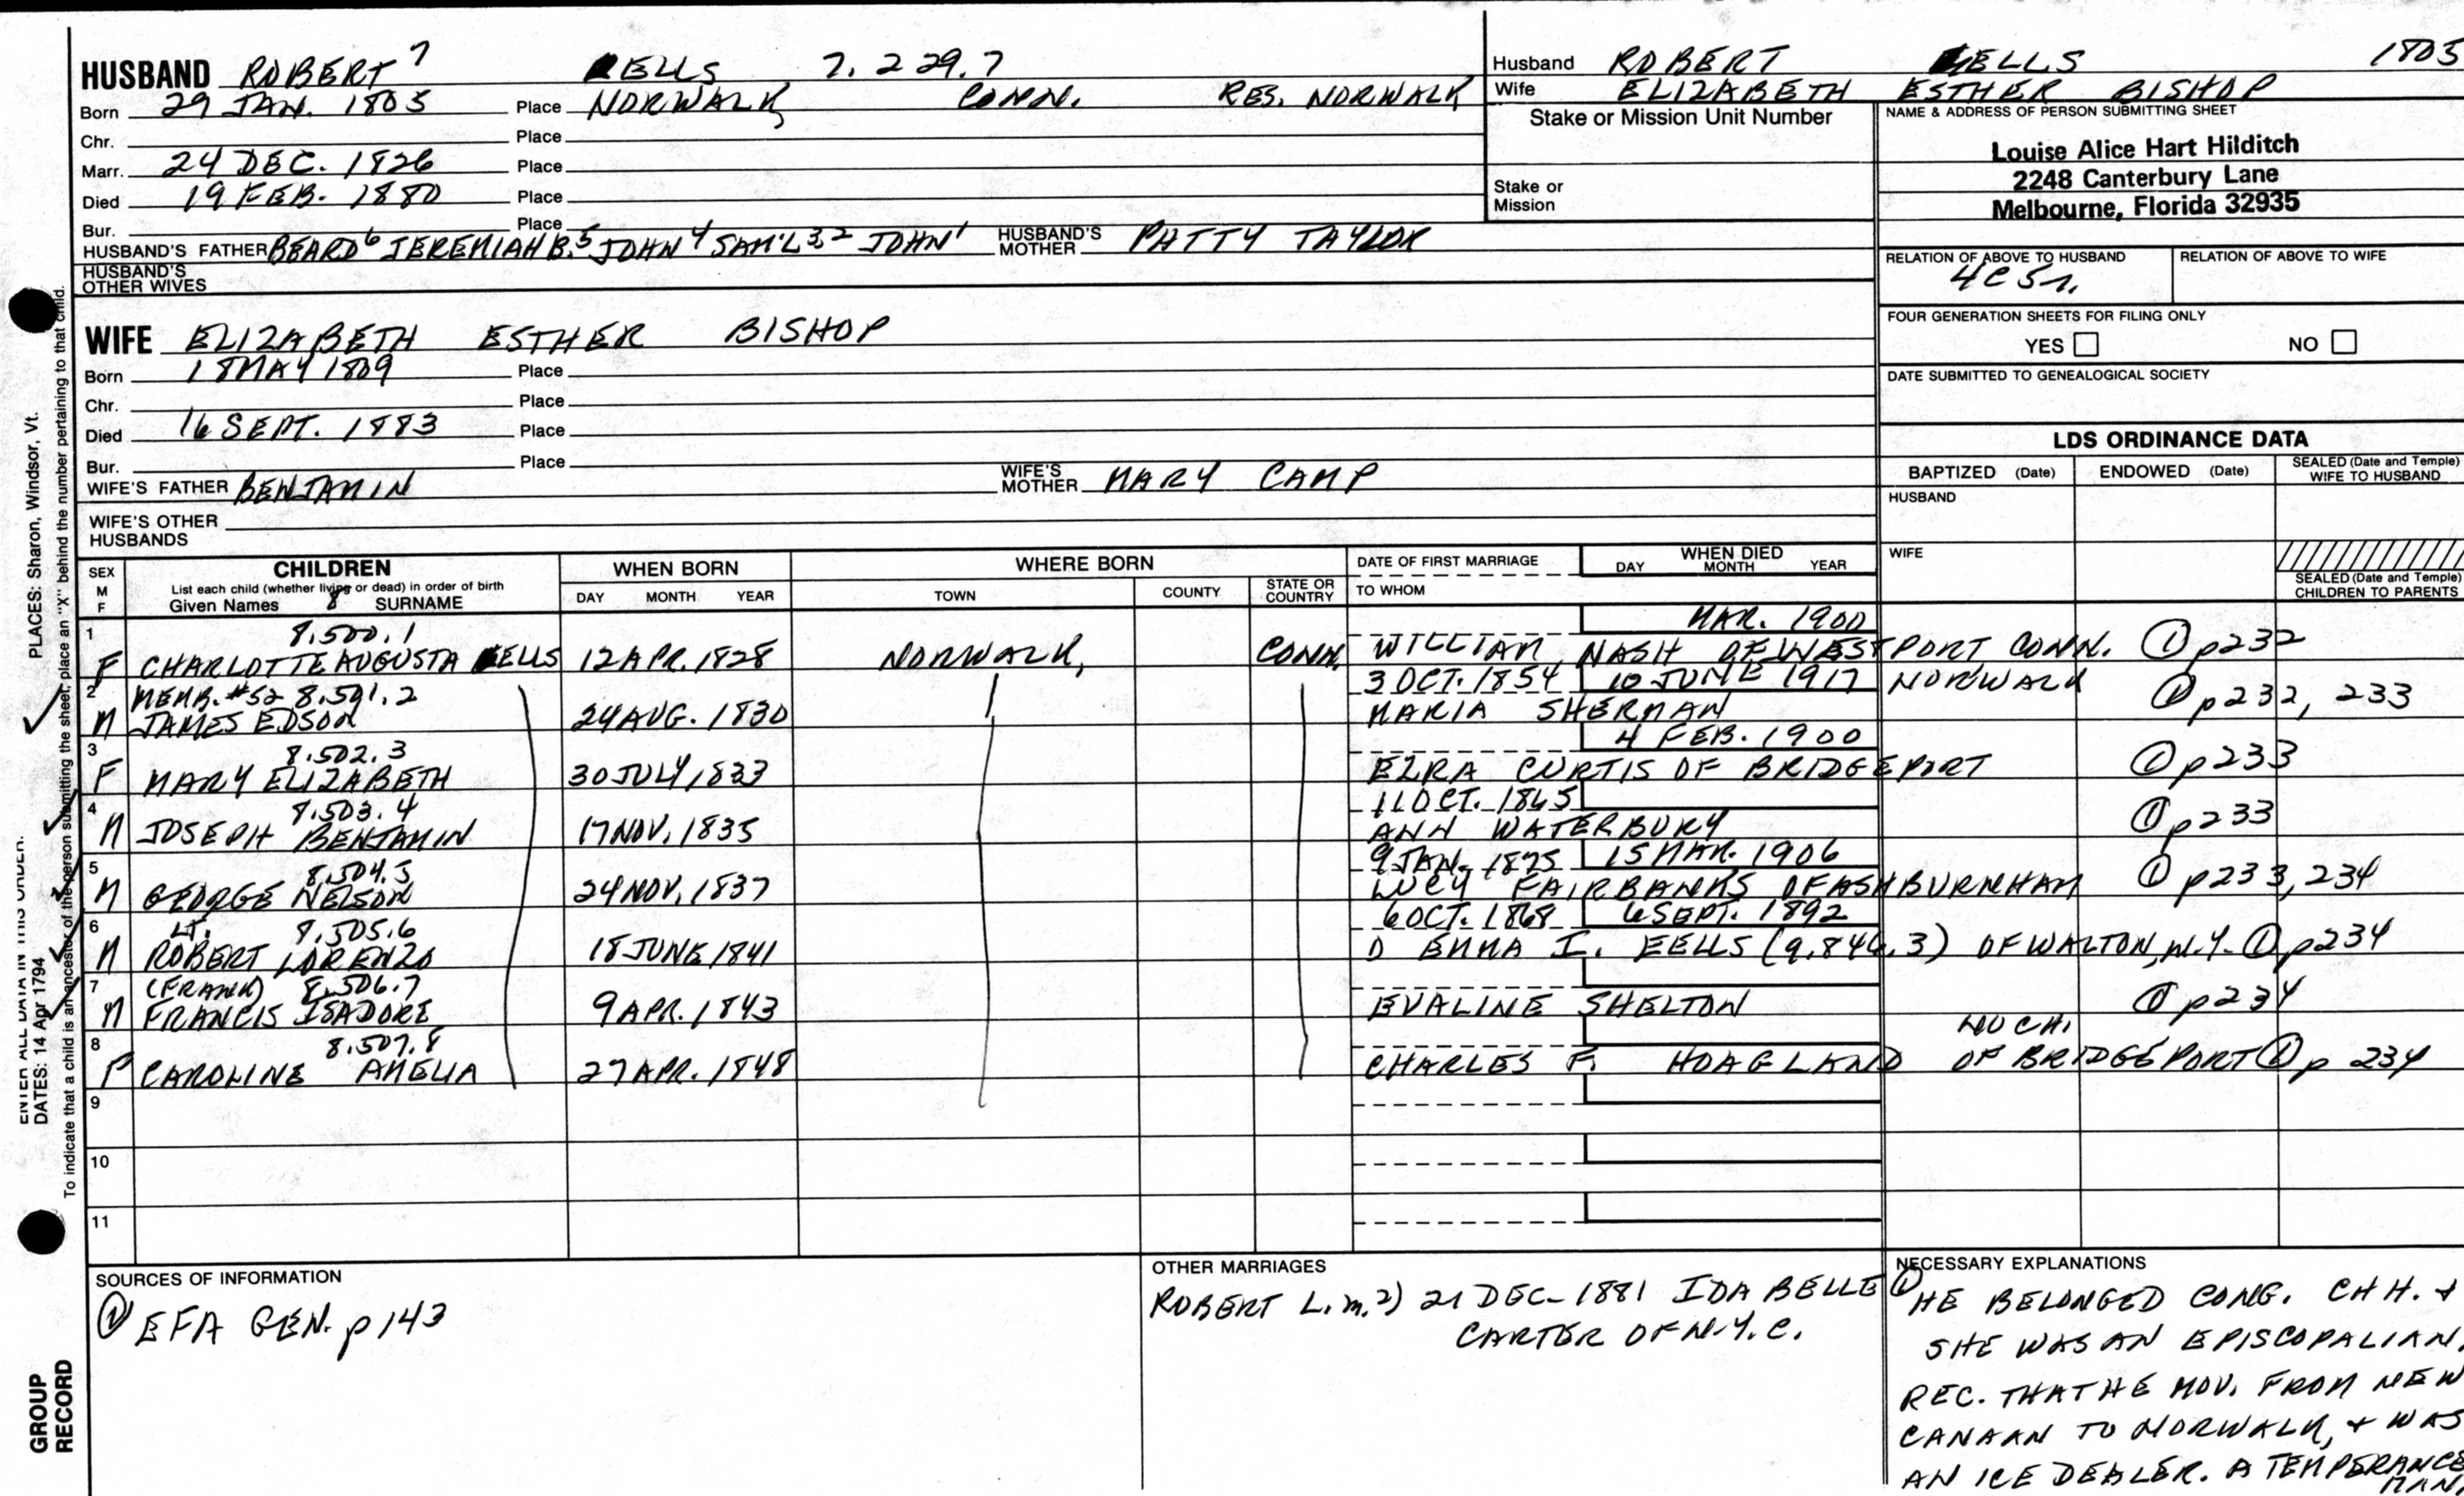 HUSBAND ROBERT 7 EELLS 7.229.7
Born 29 JAN. 1805 Place NORWALK CONN. RES. NORWALK
Chr. Place
Marr. 24 DEC. 1826 Place
Died 19 FEB. 1880 Place
Bur. Place
HUSBAND'S FATHER BEARD6 JEREMIAH B.5 JOHN4 SAM'L3,2 JOHN1 HUSBAND'S MOTHER PATTY TAYLOR
HUSBAND'S OTHER WIVES
Husband ROBERT EELLS 1805
Wife ELIZABETH ESTHER BISHOP
Stake or Mission Unit Number
Stake or Mission
NAME & ADDRESS OF PERSON SUBMITTING SHEET
Louise Alice Hart Hilditch
2248 Canterbury Lane
Melbourne, Florida 32935
RELATION OF ABOVE TO HUSBAND RELATION OF ABOVE TO WIFE
4C5r.
FOUR GENERATION SHEETS FOR FILING ONLY
YES NO
DATE SUBMITTED TO GENEALOGICAL SOCIETY
WIFE ELIZABETH ESTHER BISHOP
Born 18 MAY 1809 Place
Chr. Place
Died 16 SEPT. 1883 Place
Bur. Place
WIFE'S FATHER BENJAMIN WIFE'S MOTHER MARY CAMP
WIFE'S OTHER HUSBANDS
LDS ORDINANCE DATA
BAPTIZED (Date) ENDOWED (Date) SEALED (Date and Temple) WIFE TO HUSBAND
HUSBAND
WIFE
SEALED (Date and Temple) CHILDREN TO PARENTS
SEX M F CHILDREN WHEN BORN WHERE BORN DATE OF FIRST MARRIAGE WHEN DIED
List each child (whether living or dead) in order of birth
Given Names 8 SURNAME DAY MONTH YEAR TOWN COUNTY STATE OR COUNTRY TO WHOM DAY MONTH YEAR
1 8.500.1 MAR. 1900
F CHARLOTTE AUGUSTA EELLS 12 APR. 1828 NORWALK, CONN. WILLIAM NASH OF WESTPORT CONN. ① p232
2 MEMB. #52 8.501.2 3 OCT. 1854 10 JUNE 1917 NORWALK ① p232, 233
M JAMES EDSON 24 AUG. 1830 MARIA SHERMAN
3 8.502.3 4 FEB. 1900
F MARY ELIZABETH 30 JULY 1833 EZRA CURTIS OF BRIDGEPORT ① p233
4 8.503.4 11 OCT. 1865
M JOSEPH BENJAMIN 17 NOV. 1835 ANN WATERBURY ① p233
5 8.504.5 9 JAN. 1875 15 MAR. 1906
M GEORGE NELSON 24 NOV. 1837 LUCY FAIRBANKS OF ASHBURNHAM ① p233, 234
6 LT. 8.505.6 6 OCT. 1868 6 SEPT. 1892
M ROBERT LORENZO 18 JUNE 1841 D EMMA I. EELLS (9.846.3) OF WALTON, N.Y. ① p234
7 (FRANK) 8.506.7
M FRANCIS ISADORE 9 APR. 1843 EVALINE SHELTON ① p234
8 8.507.8 NO CH.
F CAROLINE AMELIA 27 APR. 1848 CHARLES F. HOAGLAND OF BRIDGEPORT ① p 234
9
10
11
SOURCES OF INFORMATION
① EFA GEN. p143
OTHER MARRIAGES
ROBERT L. m. 2) 21 DEC. 1881 IDA BELLE
CARTER OF N.Y.C.
NECESSARY EXPLANATIONS
① HE BELONGED CONG. CHH. +
SHE WAS AN EPISCOPALIAN.
REC. THAT HE MOV. FROM NEW
CANAAN TO NORWALK, + WAS
AN ICE DEALER. A TEMPERANCE
MAN.
ENTER ALL DATA IN THIS ORDER:
DATES: 14 Apr 1794 PLACES: Sharon, Windsor, Vt.
To indicate that a child is an ancestor of the person submitting the sheet, place an "X" behind the number pertaining to that child.
GROUP
RECORD